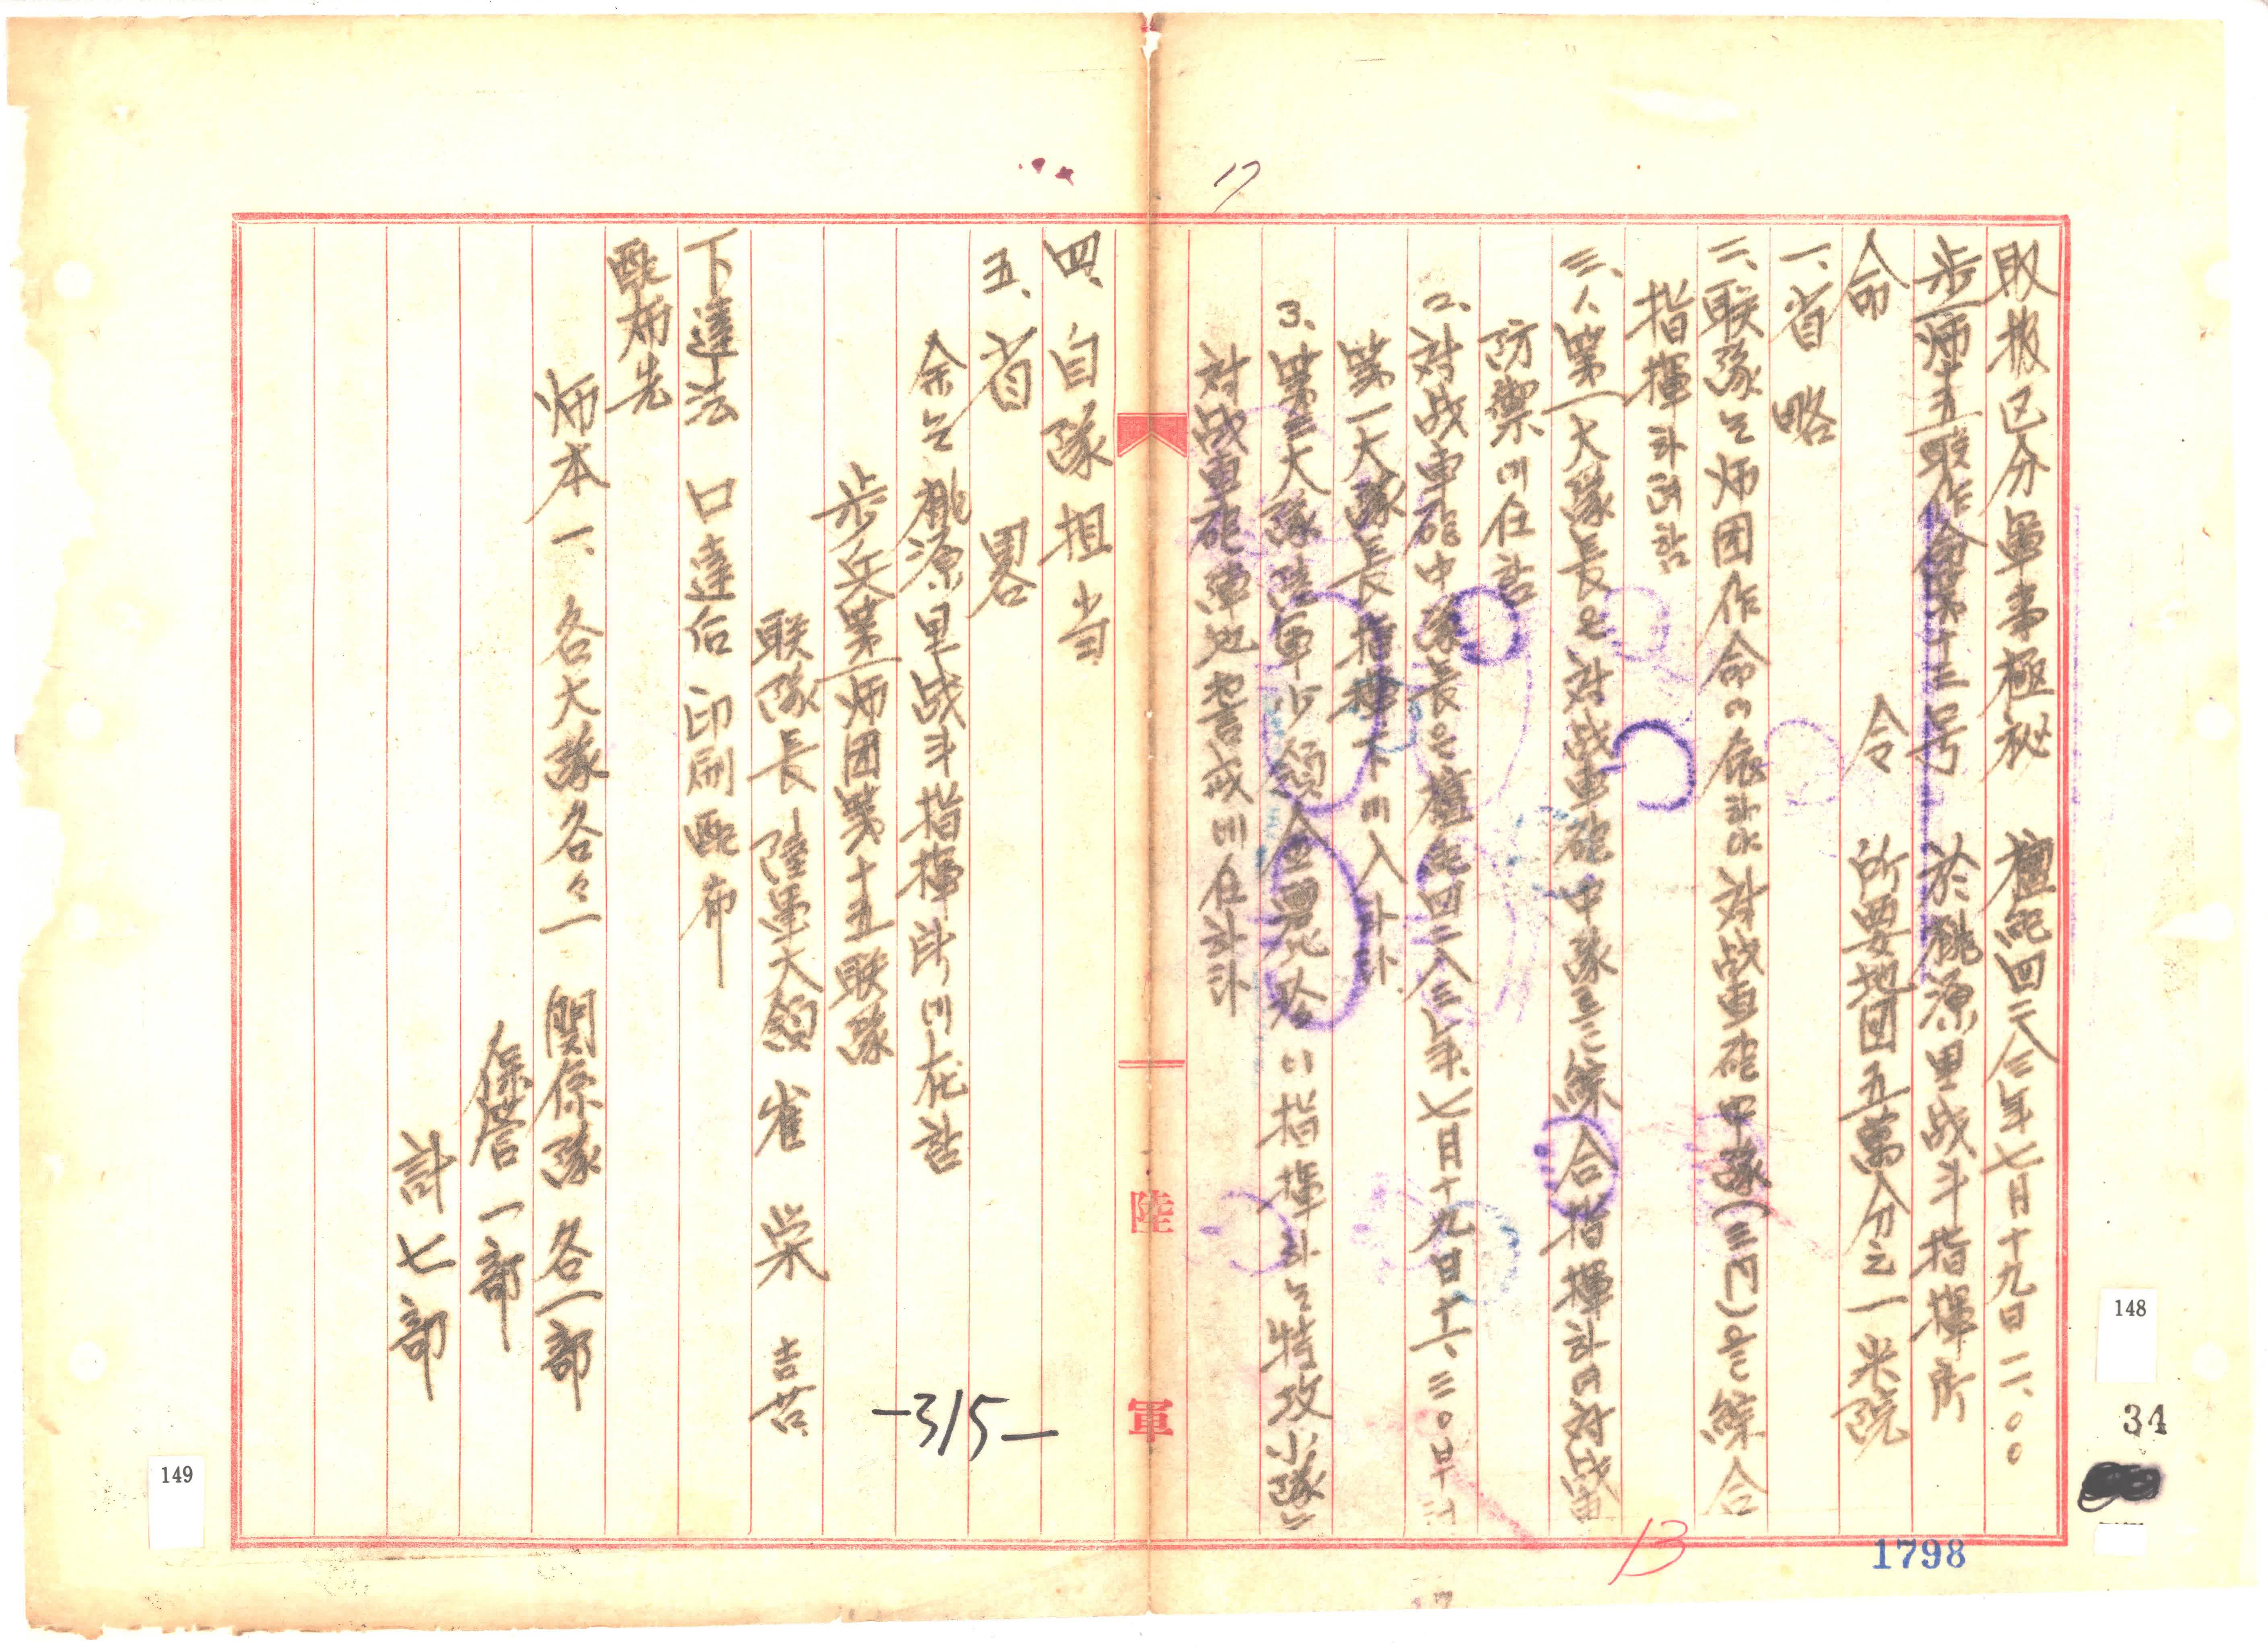 17
取扱区分 軍事極秘 檀紀四二八三年七月十九日 二一.〇〇
步一师十五联作命第十三号 於桃源里战斗指揮所
命 令 所要地図五萬分之一 米院
一、省略
二、联隊는 师団作命에 依하야 对战車砲中隊(三門)을 綜合
指揮하려함
三、1、第一大隊長은 对战車砲中隊를 綜合指揮하며 对战車
防禦에 任함
2、对战車砲中隊長은 檀紀四二八三年七月十九日十六.三〇부터
第一大隊長指揮下에 入하라
3、第三大隊 陸軍少領 이 指揮하는 特攻小隊는
对战車砲 警戒에 任하라
四、自隊担当
五、省畧
余는 桃源里战斗指揮所에 在함
步兵第一师団第十五联隊
联隊長 陸軍大領 崔 栄 喜
下達法 口達后 印刷配布
配布先
师本 一、 各大隊各々一 関係隊 各一部
保管 一部
計七部
陸軍
-315-
17
13
1798
148
34
149